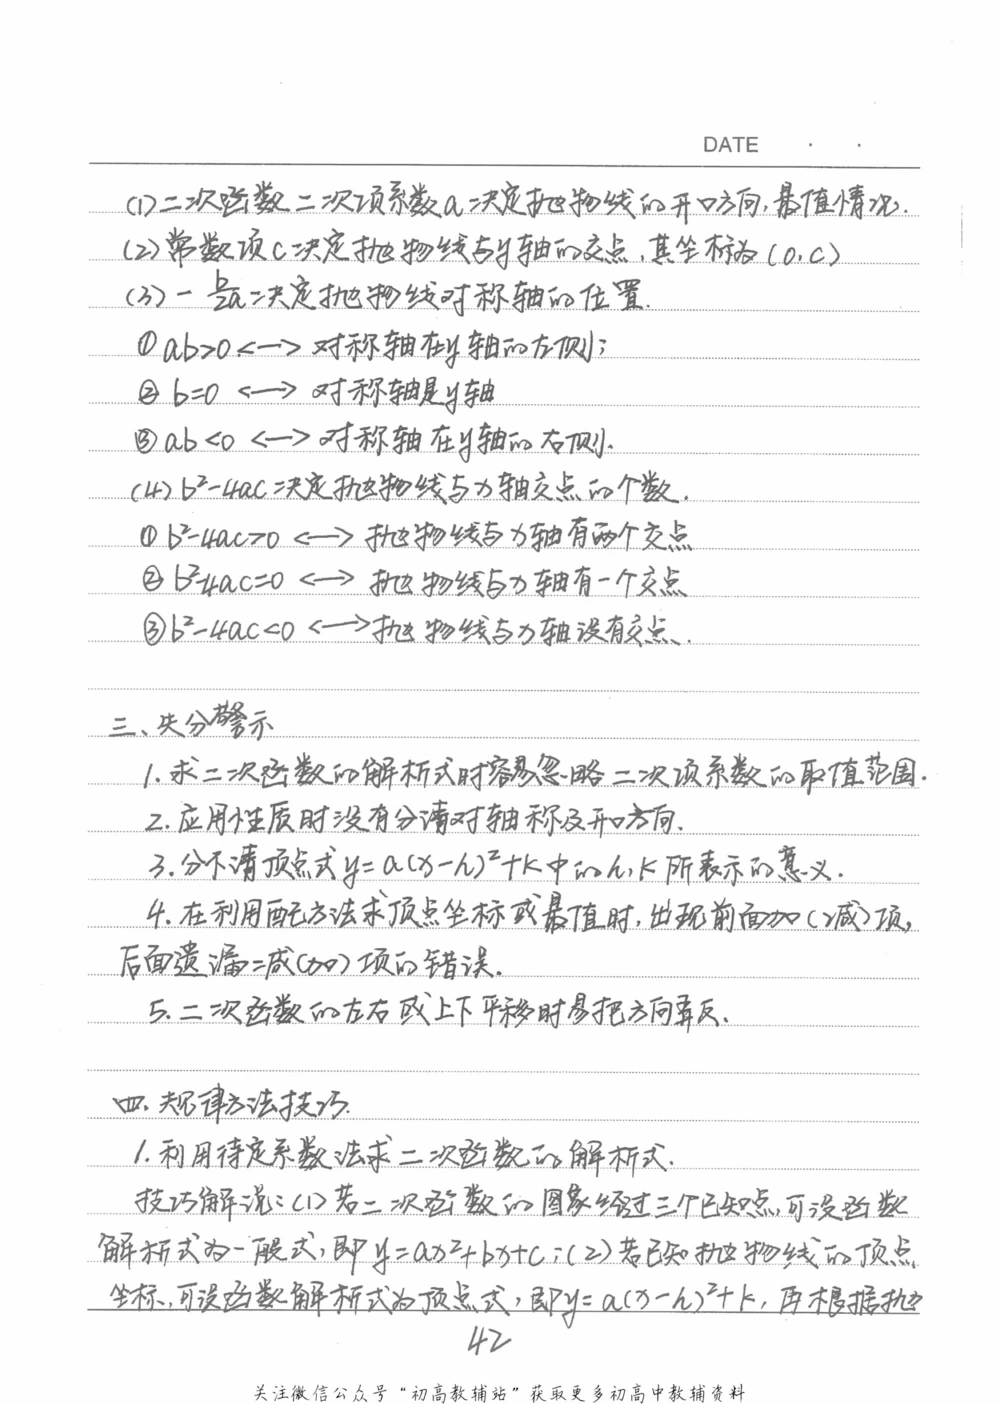 DATE · ·
(1)二次函数二次项系数a决定抛物线的开口方向,最值情况.
(2)常数项c决定抛物线与y轴的交点,其坐标为(0,c)
(3)-b/2a决定抛物线对称轴的位置.
①ab>0<—>对称轴在y轴的左侧;
②b=0<—>对称轴是y轴
③ab<0<—>对称轴在y轴的右侧.
(4)b²-4ac决定抛物线与x轴交点的个数.
①b²-4ac>0<—>抛物线与x轴有两个交点
②b²-4ac=0<—>抛物线与x轴有一个交点
③b²-4ac<0<—>抛物线与x轴没有交点.
三、失分警示
1.求二次函数的解析式时容易忽略二次项系数的取值范围.
2.应用性质时没有分清对轴称及开口方向.
3.分不清顶点式y=a(x-h)²+k中的h,k所表示的意义.
4.在利用配方法求顶点坐标或最值时,出现前面加(减)项,
后面遗漏减(加)项的错误.
5.二次函数的左右或上下平移时易把方向弄反.
四.规律方法技巧.
1.利用待定系数法求二次函数的解析式.
技巧解说:(1)若二次函数的图象经过三个已知点,可设函数
解析式为一般式,即y=ax²+bx+c;(2)若已知抛物线的顶点
坐标,可设函数解析式为顶点式,即y=a(x-h)²+k,再根据抛
42
关注微信公众号“初高教辅站”获取更多初高中教辅资料